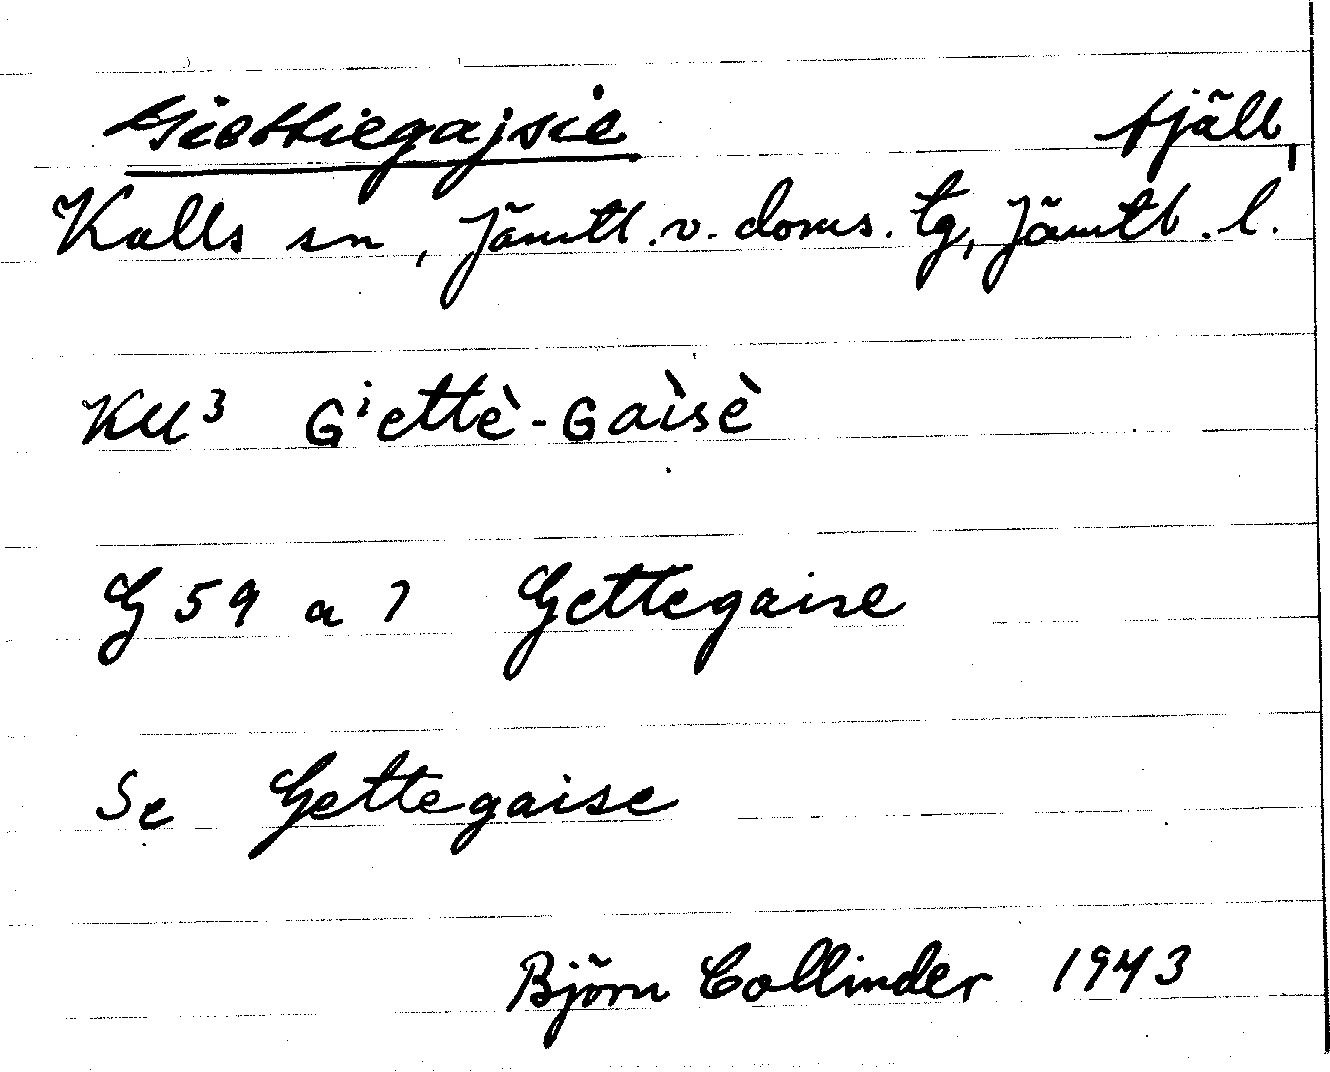 Giettiegajsie fjäll,
Kalls sn, Jämtl. v. doms. tg, Jämtl. l.
KU³ Gⁱettè-Gaìsè
G 59 a 7 Gettegaise
Se Gettegaise
Björn Collinder 1943